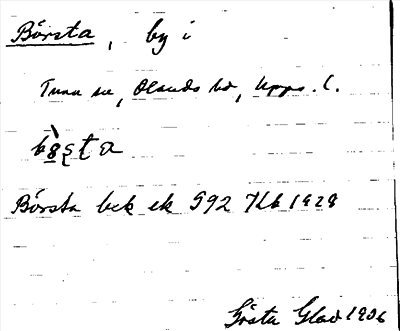 Börsta, by i
Tuna sn, Olands hd, Upps. l.
Börsta bek ek 592 Jkb 1928
Gösta Glad 1906